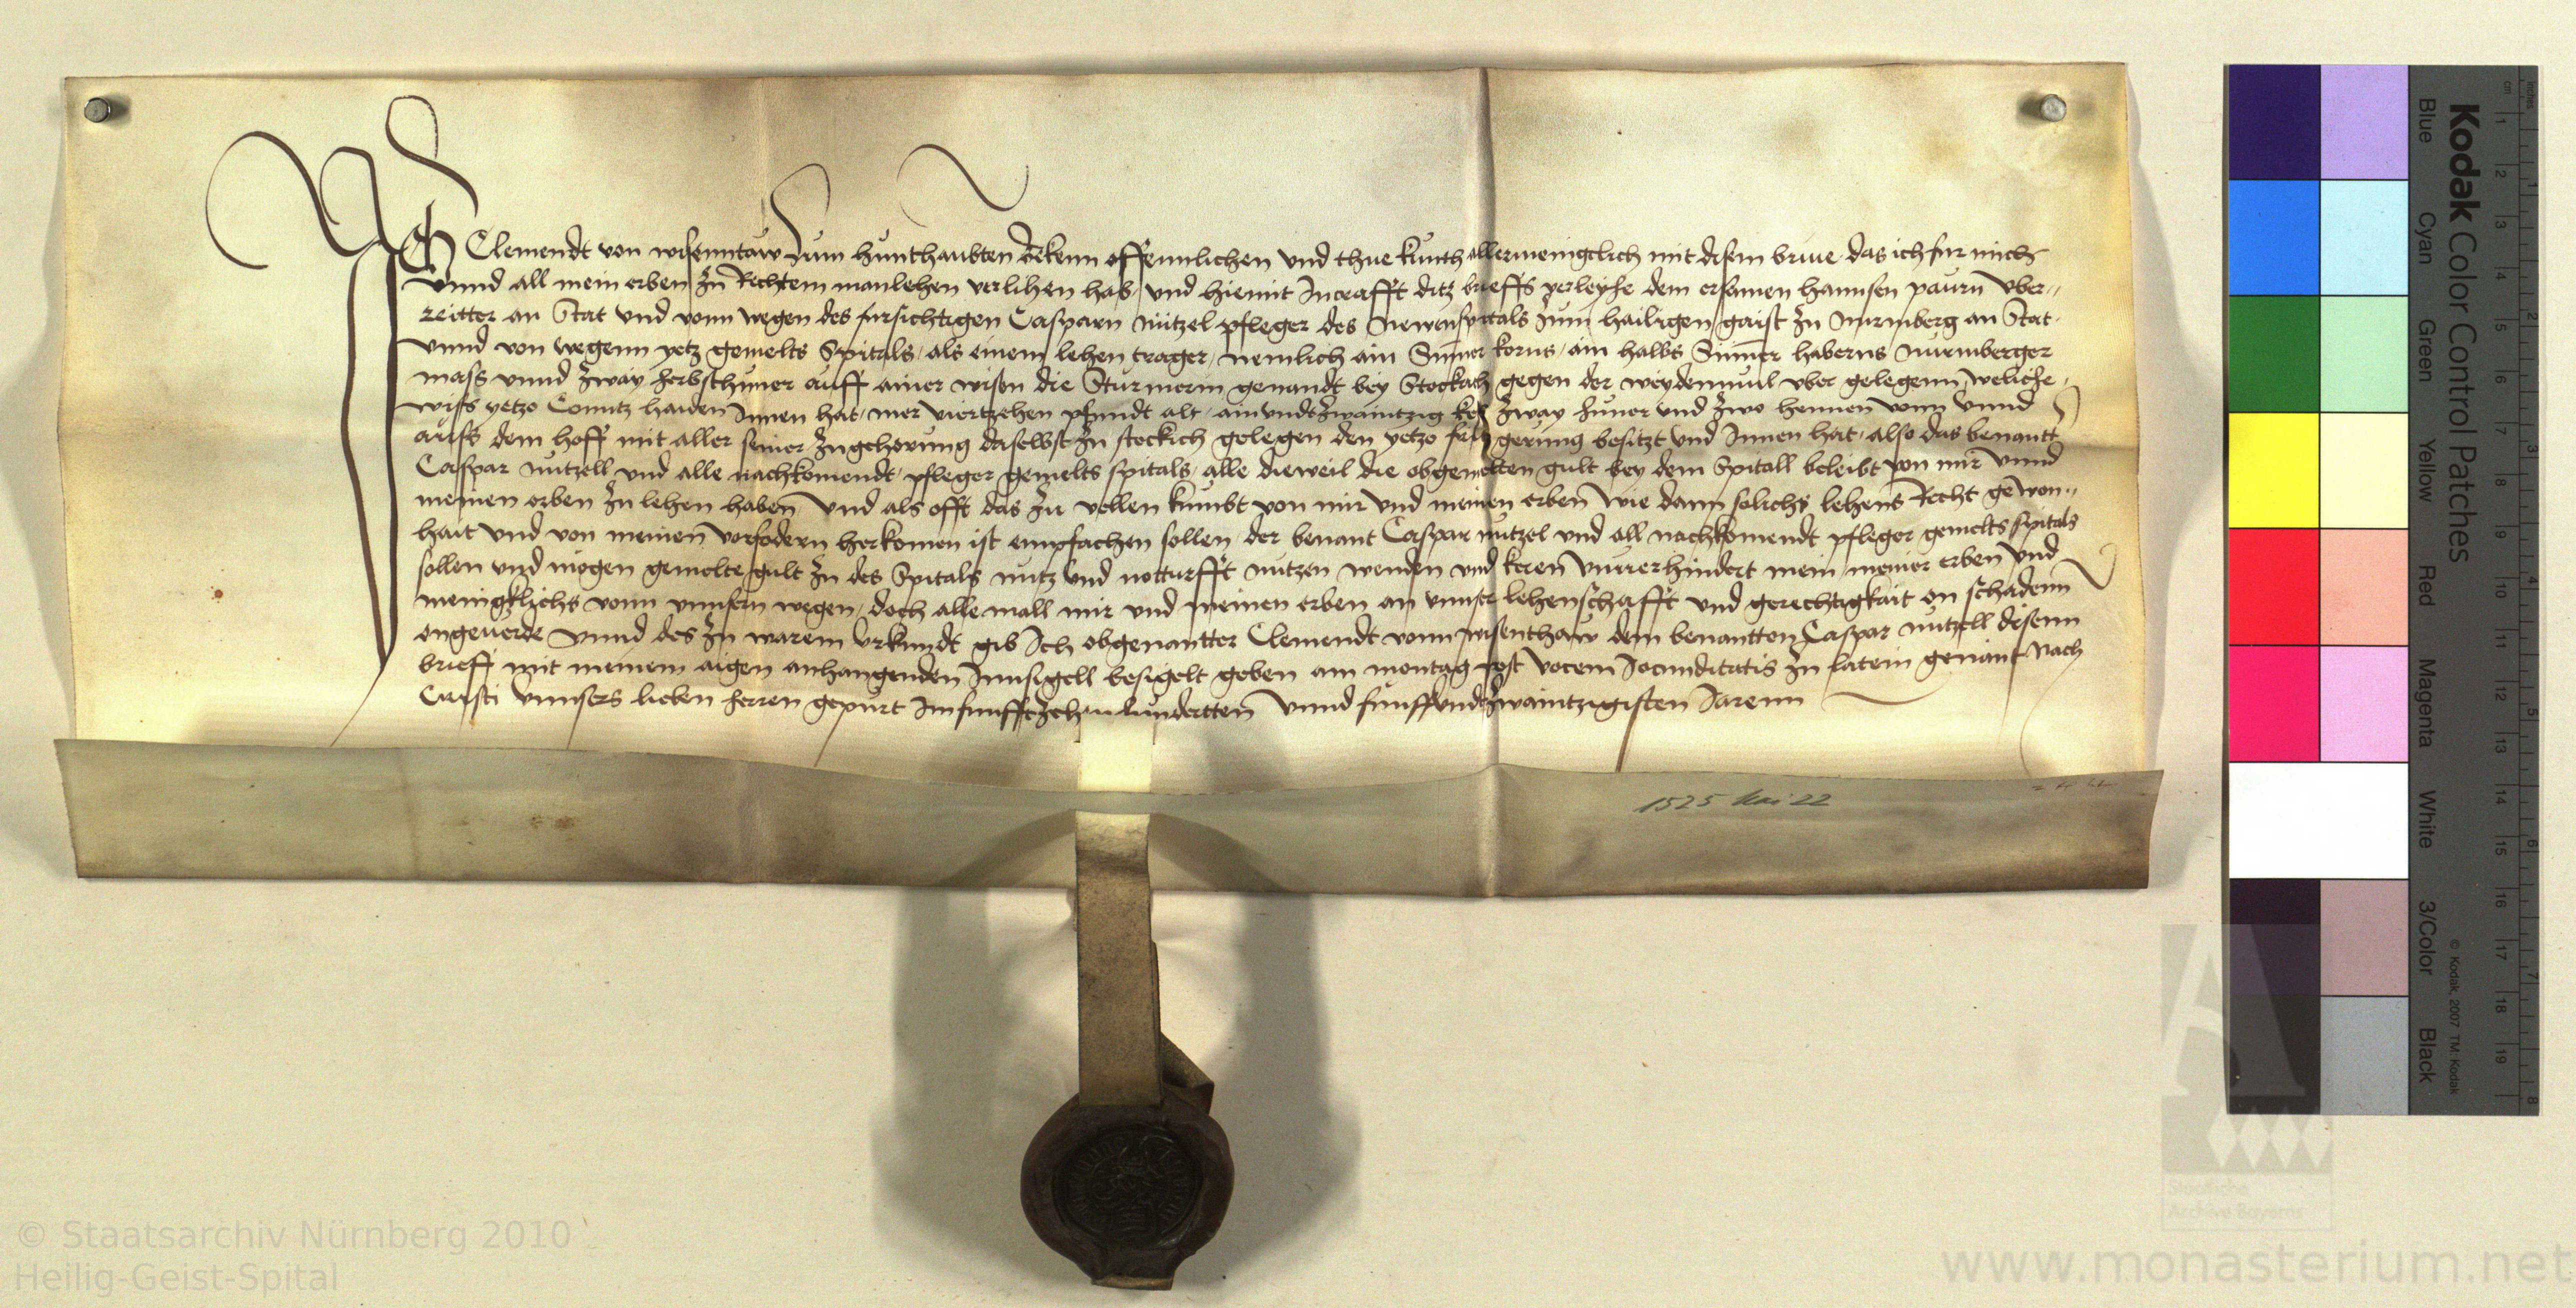 Ich Clemendt von wisenntaw zum hunthaubten bekenn offennlichen und thue kunth allermeingclich mit disem brive das ich fur mich
vnnd all mein erben zu Rechtem manlehen verlihen hab und hiemit Incrafft ditz brieffs verleyhe dem ersamen hannsen paurn vber-
reitter an Stat und vonn wegen des fursichtigen Casparn Nutzel pfleger des Newenspitals zum hailigen gaist zu Nurmberg an Stat
vnnd von wegenn yetz gemelts Spitals als einem lehen trager nemlich ain Sumer korns ain halbs Sumer haberns nurmberger
mass vnnd zway herbsthuner auff ainer wisen die Sturmerin genandt bey Stockach gegen der weydenmul vber gelegenn weliche
wiss yetzo Conntz haiden Innen hat mer viertzehen pfundt alt ainundtzwaintzig kes zway huner und zwo hennen vonn vnnd
auss dem hoff mit aller seiner zugehorung daselbst zu stockich gelegen den yetzo fritz gerung besitzt und Innen hat also das benantt
Caspar nutzell und alle nachkomendt pfleger gemelts spitals alle dieweil die obgemelten gult bey dem Spitall beleibt von mir vnnd
meinen erben zu lehen haben und als offt das zu vellen kumbt von mir und meinen erben wie dann solichs lehens Recht gewon-
hait und von meinen vorfodern herkomen ist empfachen sollen der benant Caspar nutzel und all nachkomendt pfleger gemelts spitals
sollen und mogen gemelte gult zu des Spitals nutz und notturfft nutzen wenden und keren vnuerhindert mein meiner erben und
menigklichs vonn vnnsern wegen doch alle mall mir und meinen erben an vnnser lehenschafft und gerechtigkait on schadenn
ongeuerde vnnd des zu warem vrkundt gib Ich obgenantter Clemendt vonn wisenthaw dem benantten Caspar nutzell disenn
brieff mit meinem aigen anhangenden Innsigell besigelt geben am montag post vocem Jocunditatis zu latein genant nach
Cristi vnnsers lieben herren gepurt Im funfftzehenhundertten vnnd funffundtzwaintzigisten Jarenn
1525 Mai 22
Kodak Color Control Patches
© Kodak, 2007 TM: Kodak
Blue Cyan Green Yellow Red Magenta White 3/Color Black
inches 1 2 3 4 5 6 7 8
cm 1 2 3 4 5 6 7 8 9 10 11 12 13 14 15 16 17 18 19
Staatliche
Archive Bayerns
© Staatsarchiv Nürnberg 2010
Heilig-Geist-Spital
www.monasterium.net